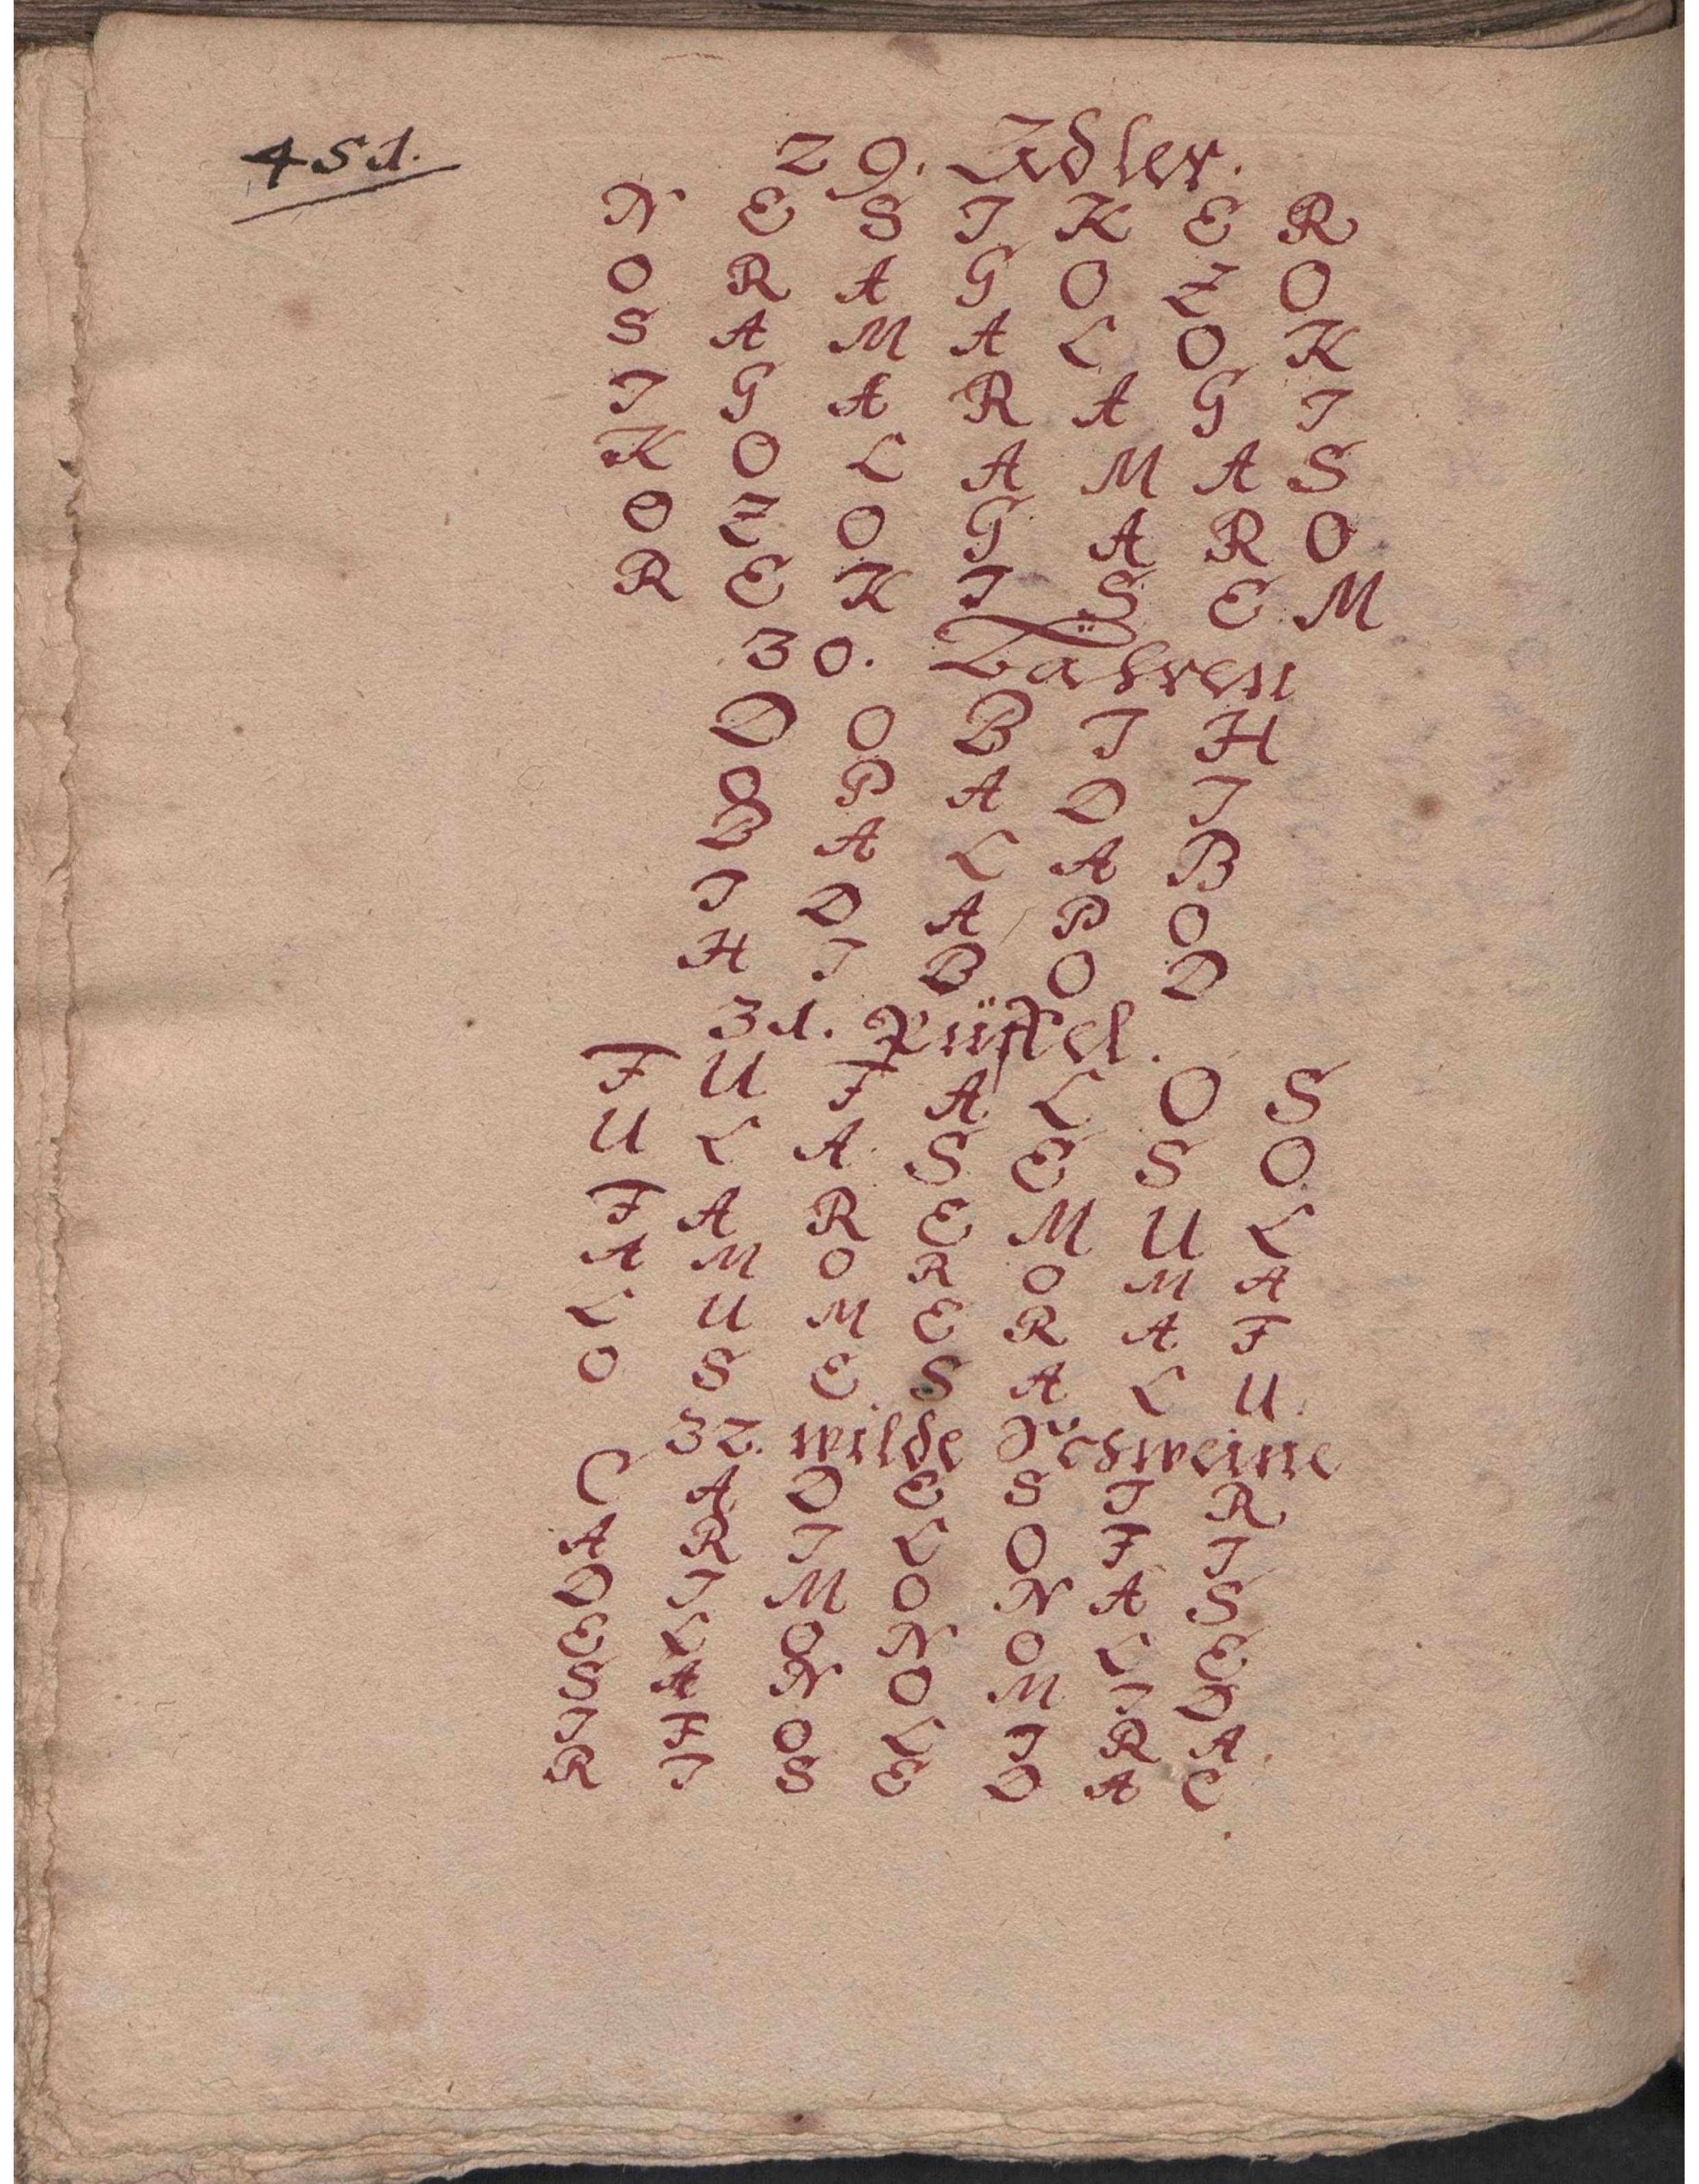 451.
29. Adler.
N E S I K E R
O R A G O Z O
S A M A L O K
I G A R A G I
K O L A M A S
O Z O G A R O
R E K I S E M
30. Bähren
D O B I H
O P A D I
B A L A B
I D A P O
H I B O D
31. Büffel.
F U F A L O S
U L A S E S O
F A R E M U L
A M O R O M A
L U M E R A F
O S E S A L U.
32. wilde Schweine
C A D E S I R
A R I L O F I
D I M O N A S
E L O N O L E
S A N O M I D
I F O L I R A.
R I S E D A C